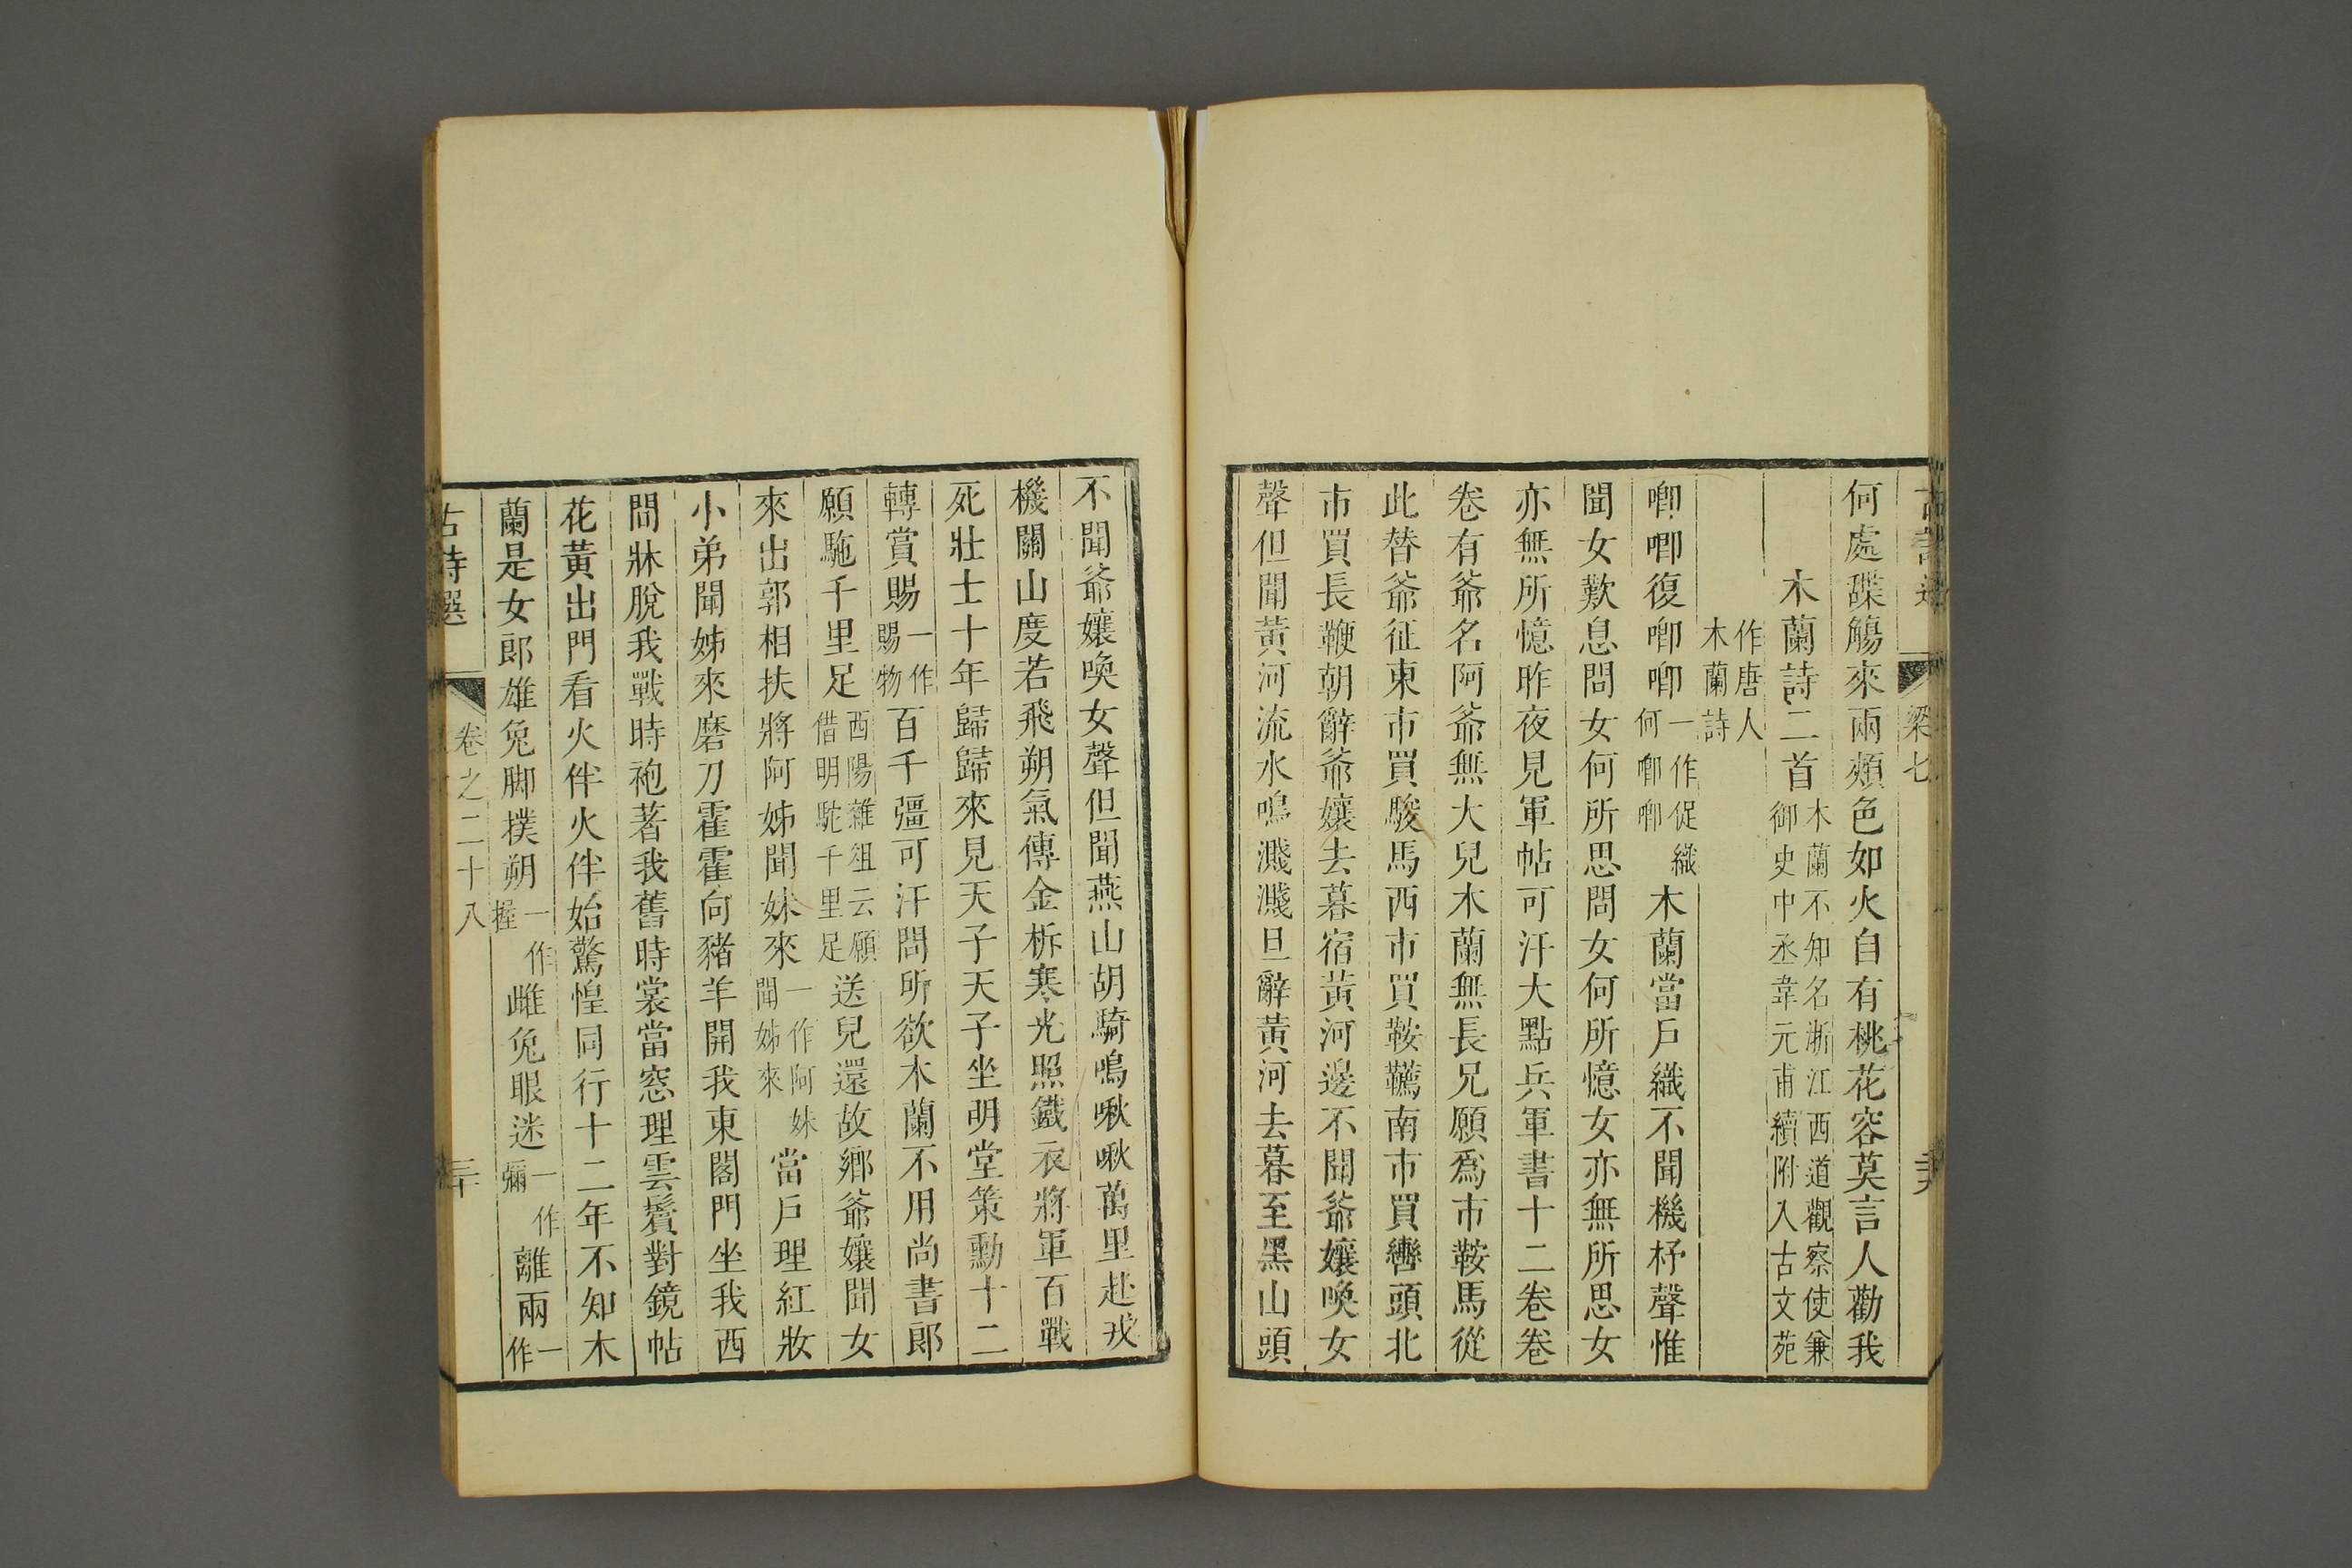 梁七
何處䠟觴來兩頰色如火自有桃花容莫言人勸我
木蘭詩二首木蘭不知名浙江西道觀察使兼御史中丞韋元甫續附入古文苑
作唐人木蘭詩
唧唧復唧唧一作促織何唧唧木蘭當戶織不聞機杼聲惟
聞女歎息問女何所思問女何所憶女亦無所思女
亦無所憶昨夜見軍帖可汗大點兵軍書十二卷卷
卷有爺名阿爺無大兒木蘭無長兄願為市鞍馬從
此替爺征東市買駿馬西市買鞍韉南市買轡頭北
市買長鞭朝辭爺孃去暮宿黃河邊不聞爺孃喚女
聲但聞黃河流水鳴濺濺旦辭黃河去暮至黑山頭
不聞爺孃喚女聲但聞燕山胡騎鳴啾啾萬里赴戎
機關山度若飛朔氣傳金柝寒光照鐵衣將軍百戰
死壯士十年歸歸來見天子天子坐明堂策勳十二
轉賞賜一作賜物百千彊可汗問所欲木蘭不用尚書郎
願馳千里足酉陽雜俎云願借明駝千里足送兒還故鄉爺孃聞女
來出郭相扶將阿姊聞妹來一作阿妹聞姊來當戶理紅妝
小弟聞姊來磨刀霍霍向豬羊開我東閣門坐我西
間牀脫我戰時袍著我舊時裳當窓理雲鬢對鏡帖
花黃出門看火伴火伴始驚惶同行十二年不知木
蘭是女郎雄兔脚撲朔一作握雌兔眼迷一作彌離兩一作
古詩選 卷之二十八